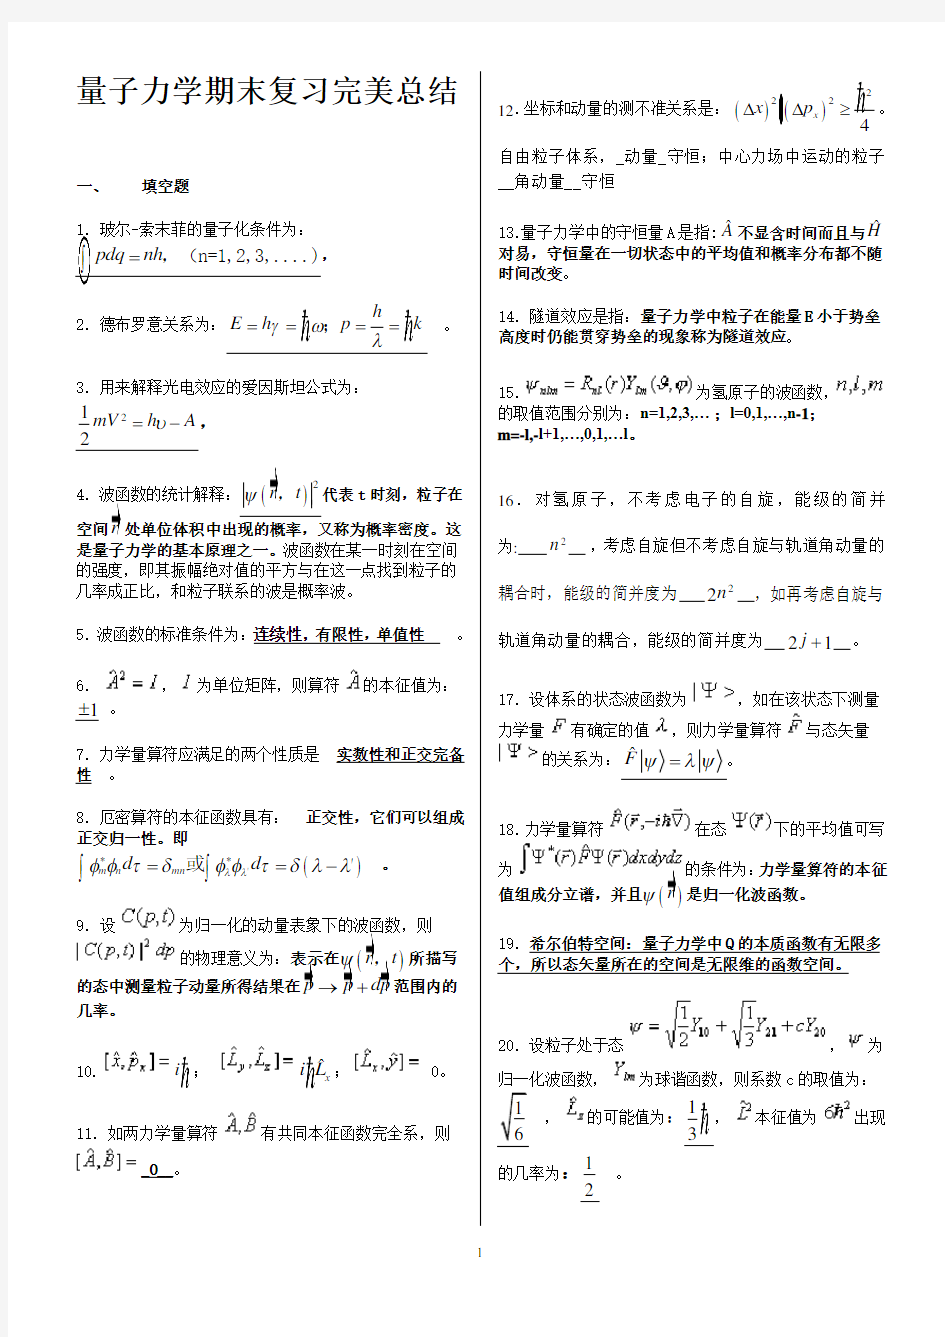 量子力学期末复习完美总结
一、 填空题
1. 玻尔-索末菲的量子化条件为：
∮pdq = nh，（n=1,2,3,....)，
2. 德布罗意关系为：E = hγ = ħω；p = h/λ = ħk 。
3. 用来解释光电效应的爱因斯坦公式为：
1/2 mV² = hυ − A，
4. 波函数的统计解释：|ψ(r，t)|² 代表 t 时刻，粒子在
空间 r 处单位体积中出现的概率，又称为概率密度。这
是量子力学的基本原理之一。波函数在某一时刻在空间
的强度，即其振幅绝对值的平方与在这一点找到粒子的
几率成正比，和粒子联系的波是概率波。
5. 波函数的标准条件为：连续性，有限性，单值性 。
6. Â² = I，I 为单位矩阵，则算符 Â 的本征值为：
±1 。
7. 力学量算符应满足的两个性质是 实数性和正交完备
性 。
8. 厄密算符的本征函数具有： 正交性，它们可以组成
正交归一性。即
∫φ*ₘφₙdτ = δₘₙ 或 ∫φ*_λ φ_λ' dτ = δ(λ − λ') 。
9. 设 C(p,t) 为归一化的动量表象下的波函数，则
|C(p,t)|² dp 的物理意义为：表示在ψ(r，t)所描写
的态中测量粒子动量所得结果在 p → p + dp 范围内的
几率。
10. [x̂,p̂ₓ] = iħ； [L̂y,L̂z] = iħL̂ₓ；[L̂ₓ,ŷ] = 0。
11. 如两力学量算符 Â,B̂ 有共同本征函数完全系，则
[Â,B̂] = _0__。
12．坐标和动量的测不准关系是： (Δx)²(Δpₓ)² ≥ ħ²/4 。
自由粒子体系，_动量_守恒；中心力场中运动的粒子
__角动量__守恒
13.量子力学中的守恒量 A 是指：Â 不显含时间而且与 Ĥ
对易，守恒量在一切状态中的平均值和概率分布都不随
时间改变。
14. 隧道效应是指：量子力学中粒子在能量 E 小于势垒
高度时仍能贯穿势垒的现象称为隧道效应。
15. ψnlm = Rnl(r)Ylm(ϑ,φ) 为氢原子的波函数，n,l,m
的取值范围分别为：n=1,2,3,… ；l=0,1,…,n-1；
m=-l,-l+1,…,0,1,…l。
16．对氢原子，不考虑电子的自旋，能级的简并
为:___n²__，考虑自旋但不考虑自旋与轨道角动量的
耦合时，能级的简并度为___2n²__，如再考虑自旋与
轨道角动量的耦合，能级的简并度为__2j+1__。
17. 设体系的状态波函数为 |Ψ>，如在该状态下测量
力学量 F 有确定的值 λ，则力学量算符 F̂ 与态矢量
|Ψ> 的关系为：F̂|ψ⟩ = λ|ψ⟩。
18.力学量算符 F̂(r⃗,−iħ∇⃗) 在态 Ψ(r⃗) 下的平均值可写
为 ∫Ψ*(r⃗)F̂Ψ(r⃗)dxdydz 的条件为：力学量算符的本征
值组成分立谱，并且ψ(r)是归一化波函数。
19. 希尔伯特空间：量子力学中 Q 的本质函数有无限多
个，所以态矢量所在的空间是无限维的函数空间。
20. 设粒子处于态 ψ = √(1/2) Y₁₀ + √(1/3) Y₂₁ + cY₂₀，ψ 为
归一化波函数，Ylm 为球谐函数，则系数 c 的取值为：
√(1/6) ，L̂z 的可能值为：1/3 ħ，L̂² 本征值为 6ħ² 出现
的几率为：1/2 。
1